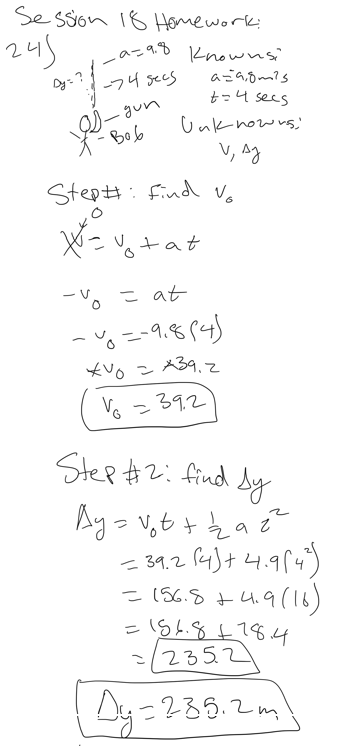 Session 18 Homework:
24)
a=9.8
Δy=?
→4 secs
gun
Bob
Knowns:
a=9.8m/s
t=4 secs
Unknowns:
V, Δy
Step#: find v₀
V⁰ = v₀ + at
-v₀ = at
-v₀ = -9.8(4)
-v₀ = -39.2
v₀ = 39.2
Step #2: find Δy
Δy = v₀t + ½ a t²
= 39.2(4) + 4.9(4²)
= 156.8 + 4.9(16)
= 156.8 + 78.4
= 235.2
Δy = 235.2 m